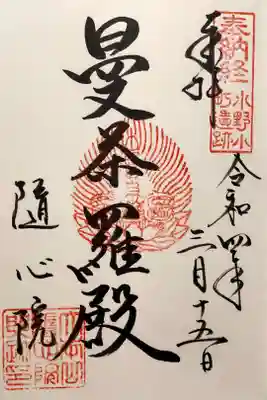 奉納経
小野小
町遺跡
奉拝
令和四年
三月十五日
曼荼羅殿
随心院